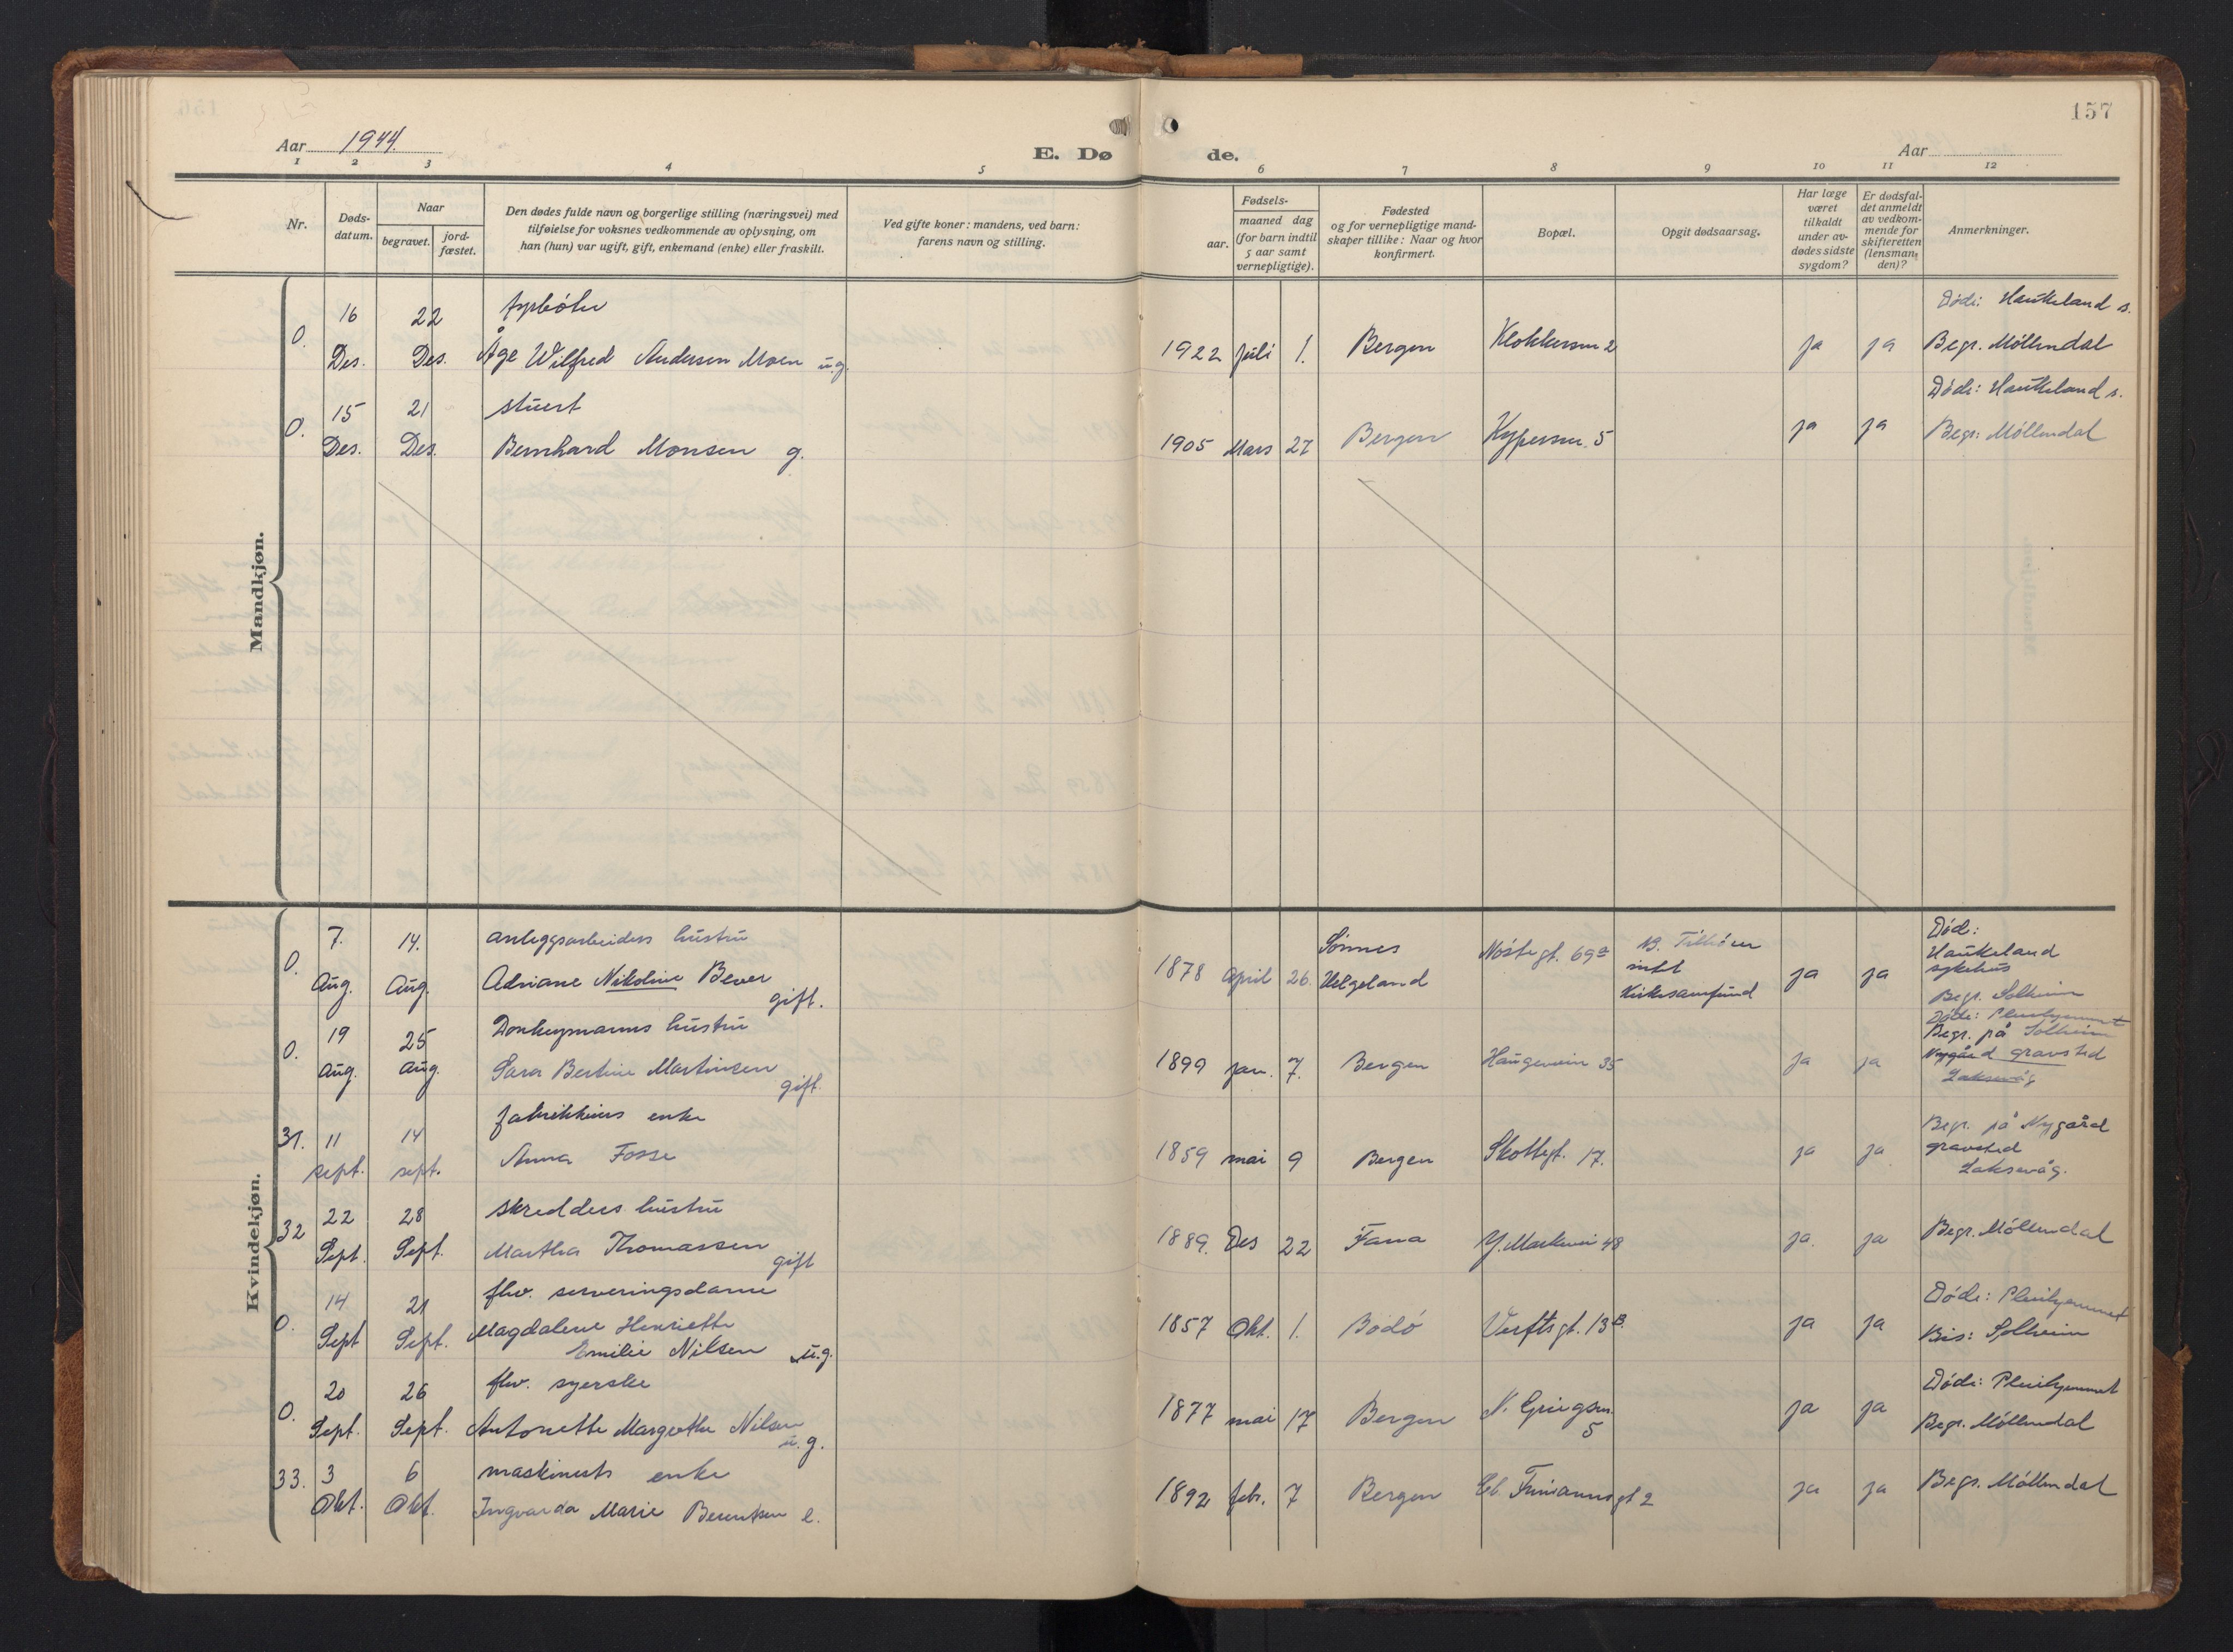 157
Aar 1944.
E. Dø de.
Aar
1 2 3 4 5 6 7 8 9 10 11 12
Nr.
Døds-
datum.
Naar
begravet.
jord-
fæstet.
Den dødes fulde navn og borgerlige stilling (næringsvei) med
tilføielse for voksnes vedkommende av oplysning, om
han (hun) var ugift, gift, enkemand (enke) eller fraskilt.
Ved gifte koner: mandens, ved barn:
farens navn og stilling.
Fødsels-
aar.
maaned dag
(for barn indtil
5 aar samt
vernepligtige).
Fødested
og for vernepligtige mand-
skaper tillike: Naar og hvor
konfirmert.
Bopæl.
Opgit dødsaarsag.
Har læge
været
tilkaldt
under av-
dødes sidste
sygdom?
Er dødsfal-
det anmeldt
av vedkom-
mende for
skifteretten
(lensman-
den)?
Anmerkninger.
Mandkjøn.
16 22 fyrbøter Døde: Haukeland s.
0. Des. Des. Åge Wilfred Andersen Moen u.g. 1922 juli 1. Bergen Klokkersm 2 ja ja Begr. Møllendal
15 21 stuert Døde: Haukeland s.
0. Des. Des. Bernhard Monsen g. 1905 Mars 27 Bergen Kypersm. 5 ja ja Begr: Møllendal
Kvindekjøn.
7. 14. anleggsarbeiders hustru Sønnes Nøstegt. 69a NB. Tilhører Død:
0. Aug. Aug. Adriane Nikoline Bever gift. 1878 April 26. Helgeland intet ja ja Haukeland
Kirkesamfund sykehus
Begr. Solheim
19 25 Donkeymanns hustru Døde: Pleiehjemmet
0. Aug. Aug. Sara Bertine Martinsen gift. 1899 jan. 7. Bergen Haugeveien 35 ja ja Begr. på Solheim
Nygård gravsted
Laksevåg
31. 11 14 fabrikkeiers enke Begr. på Nygård
sept. sept. Anna Fosse 1859 mai 9 Bergen Skottegt. 17. ja ja gravsted
Laksevåg.
32 22 28 skredders hustru
Sept. Sept. Martha Thomassen gift 1889. Des 22 Fana Y. Markevei 48 ja. ja Begr. Møllendal
14 21 fhv. serveringsdame Døde: Pleiehjemmet
0. Sept Sept. Magdalene Henriette 1857 Okt. 1. Bodø Verftsgt. 13B. ja ja Bis: Solheim
Emilie Nilsen u.g.
20 26 fhv. syerske Døde: Pleiehjemmet
0. Sept. Sept. Antonette Margrethe Nilsen u.g. 1877 mai 17 Bergen N. Griegsm. 5 ja ja Begr. Møllendal
33. 3 6 maskinists enke
Okt. Okt. Ingvarda Marie Berentsen e. 1892 feb. 7 Bergen Cl. Frimannsgt 2 ja ja Begr. Møllendal